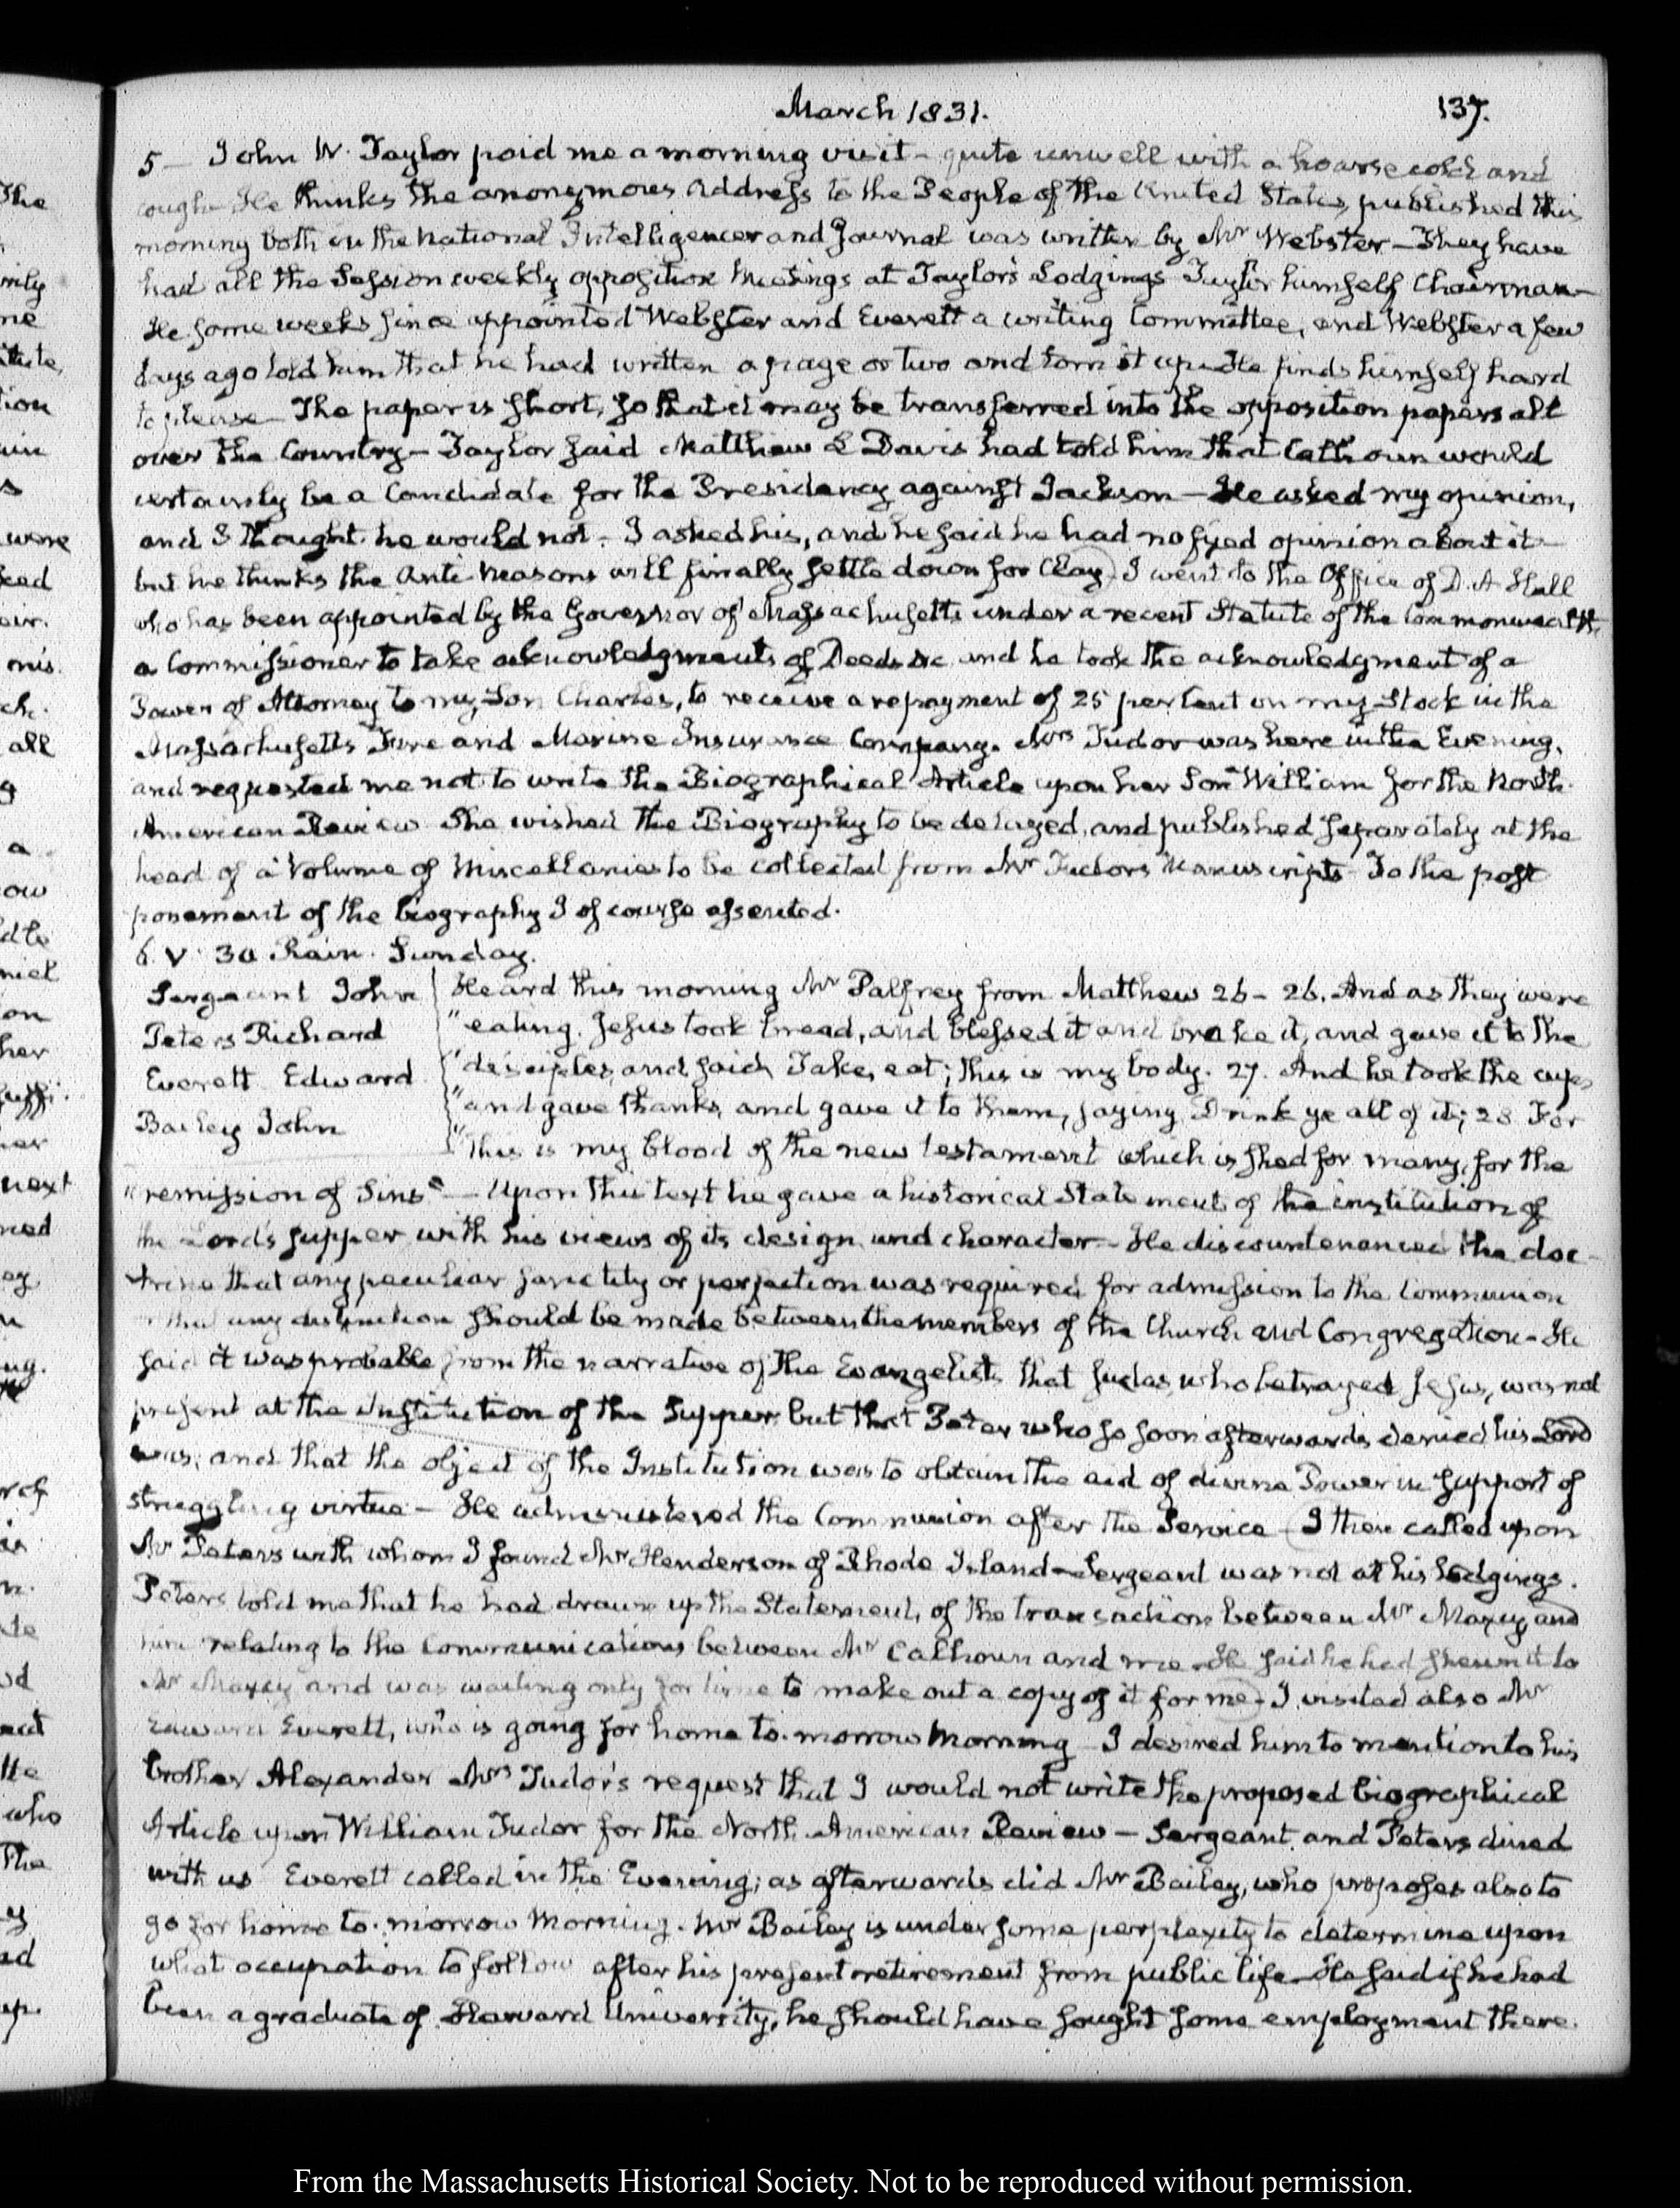 March 1831.
137.
5— John W. Taylor paid me a morning visit — quite unwell with a hoarse cold and
cough — He thinks the anonymous Address to the People of the United States, published this
morning both in the National Intelligencer and Journal was written by Mr Webster — They have
had all the Session weekly opposition Meetings at Taylor's Lodgings Taylor himself Chairman —
He some weeks since appointed Webster and Everett a writing Committee, and Webster a few
days ago told him that he had written a page or two and torn it up — He finds himself hard
to please — The paper is short, so that it may be transferred into the opposition papers all
over the Country — Taylor said Matthew L Davis had told him that Calhoun would
certainly be a Candidate for the Presidency against Jackson — He asked my opinion,
and I thought he would not — I asked his, and he said he had no fixed opinion about it —
but he thinks the Anti Masons will finally settle down for Clay — I went to the Office of D. A Hall
who has been appointed by the Governor of Massachusetts under a recent Statute of the Commonwealth
a Commissioner to take acknowledgments of Deeds &c and he took the acknowledgment of a
Power of Attorney to my Son Charles, to receive a repayment of 25 per Cent on my Stock in the
Massachusetts Fire and Marine Insurance Company. Mrs Tudor was here in the Evening,
and requested me not to write the Biographical Article upon her Son William for the North
American Review. She wished the Biography to be delayed, and published separately at the
head of a Volume of Miscellanies to be collected from Mr Tudors Manuscripts — To the post
ponement of the biography I of course assented.
6. V. 30 Rain. Sunday.
Sergeant John
Peters Richard
Everett Edward
Bailey John
Heard this morning Mr Palfrey from Matthew 26 — 26. And as they were
"eating. Jesus took bread, and blessed it and brake it, and gave it to the
"disciples, and said, Take, eat; this is my body. 27. And he took the cup,
"and gave thanks, and gave it to them, saying Drink ye all of it; 28 For
"this is my blood of the new testament which is shed for many, for the
"remission of Sins" — Upon this text he gave a historical Statement of the institution of
the Lord's supper with his views of its design and character — He discountenanced the doc-
trine that any peculiar sanctity or perfection was required for admission to the Communion
or that any distinction should be made between the members of the Church and Congregation — He
said it was probable from the narrative of the Evangelists that Judas, who betrayed Jesus, was not
present at the Institution of the Supper. but that Peter who so soon afterwards denied his Lord
was; and that the object of the Institution was to obtain the aid of divine Power in support of
struggling virtue — He administered the Communion after the Service — I then called upon
Mr Peters with whom I found Mr Henderson of Rhode Island — Sergeant was not at his lodgings.
Peters told me that he had drawn up the Statement, of the transactions between Mr Maxcy and
him relating to the Communications between Mr Calhoun and me — He said he had shewn it to
Mr Maxcy and was waiting only for time to make out a copy of it for me — I visited also Mr
Edward Everett, who is going for home to-morrow Morning — I desired him to mention to his
brother Alexander Mrs Tudor's request that I would not write the proposed biographical
Article upon William Tudor for the North American Review — Sergeant and Peters dined
with us Everett called in the Evening; as afterwards did Mr Bailey, who proposes also to
go for home to-morrow Morning. Mr Bailey is under some perplexity to determine upon
what occupation to follow after his present retirement from public life — He said if he had
been a graduate of Harvard University, he should have sought some employment there.
From the Massachusetts Historical Society. Not to be reproduced without permission.